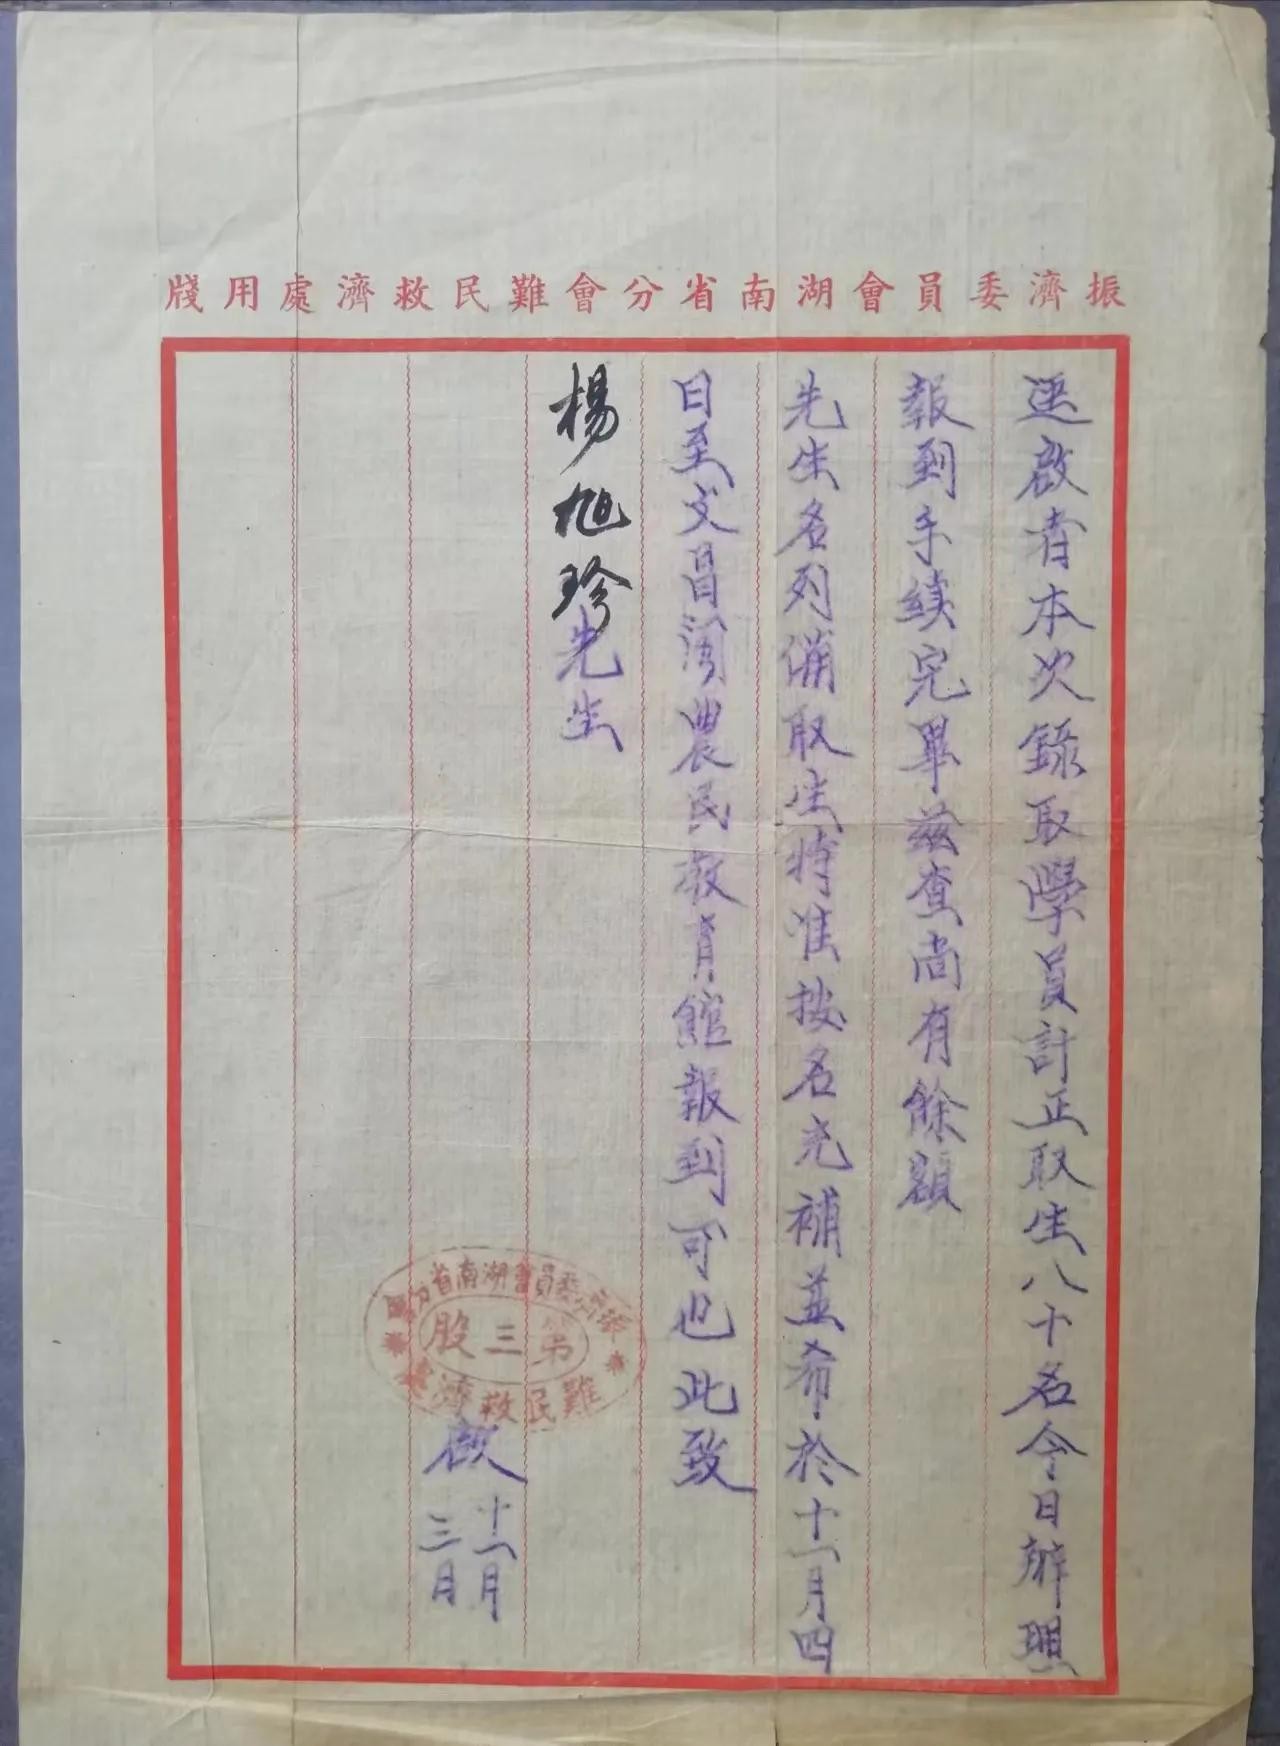 振濟委員會湖南省分會難民救濟處用牋
逕啟者本次錄取學員計正取生八十名今日辦理
報到手續完畢茲查尚有餘額
先生名列備取生特准按名充補並希於十一月四
日至文昌閣農民教育館報到可也此致
楊旭珍先生
振濟委員會湖南省分會
第三股
難民救濟處
啟
十一月
三日